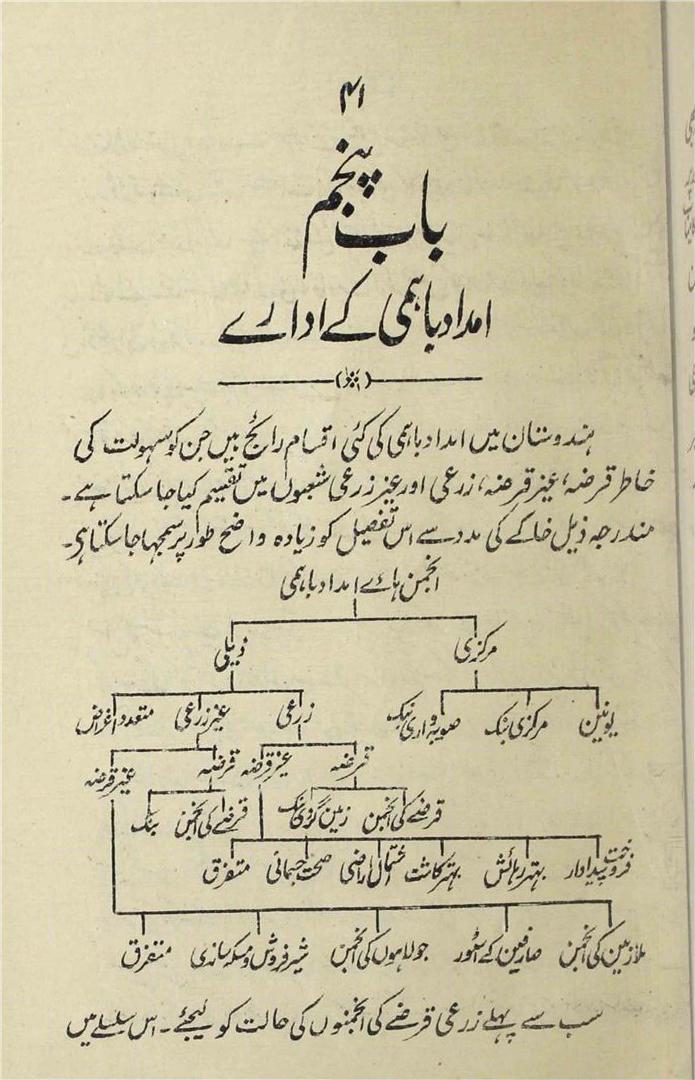 ۴۱
باب پنجم
امداد باہمی کے ادارے
ہندوستان میں امداد باہمی کی کئی اقسام رائج ہیں جن کو سہولت کی
خاطر قرضہ، غیر قرضہ، زرعی اور غیر زرعی شعبوں میں تقسیم کیا جا سکتا ہے۔
مندرجہ ذیل خاکے کی مدد سے اس تفصیل کو زیادہ واضح طور پر سمجہا جا سکتا ہی۔
انجمن ہائے امداد باہمی
مرکزی ذیلی
یونین مرکزی بنک صوبہ واری بنک زرعی غیر زرعی متعدد اغراض
قرضہ غیر قرضہ قرضہ غیر قرضہ
قرضے کی انجمن زمین گروی بنک قرضے کی انجمن بنک
فروخت پیداوار بہتر رہائش بہتر کاشت اشتمال اراضی صحت جسمانی متفرق
ملازمین کی انجمن صارفین کے سٹور جولاہوں کی انجمن شیر فروش و مسکہ سازی متفرق
سب سے پہلے زرعی قرضے کی انجمنوں کی حالت کو لیجئے۔ اس سلسلے میں